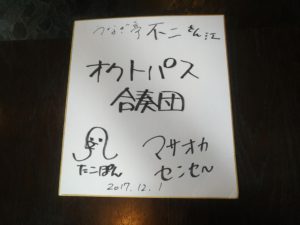 つなぎ亭 不二さん江
オクトパス
合奏団
たこぽん
マサオカ
センセ〜
2017.12.1